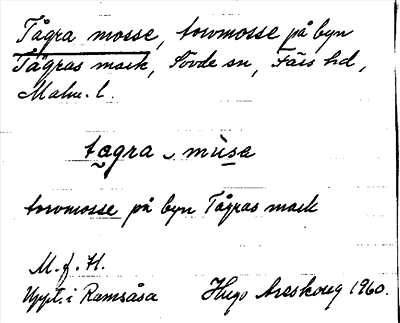 Tågra mosse, torvmosse på byn
Tågras mark, Sövde sn, Färs hd,
Malm. l.
tagra musa
torvmosse på byn Tågras mark
M. f. H.
Uppt. i Ramsåsa Hugo Areskoug 1960.